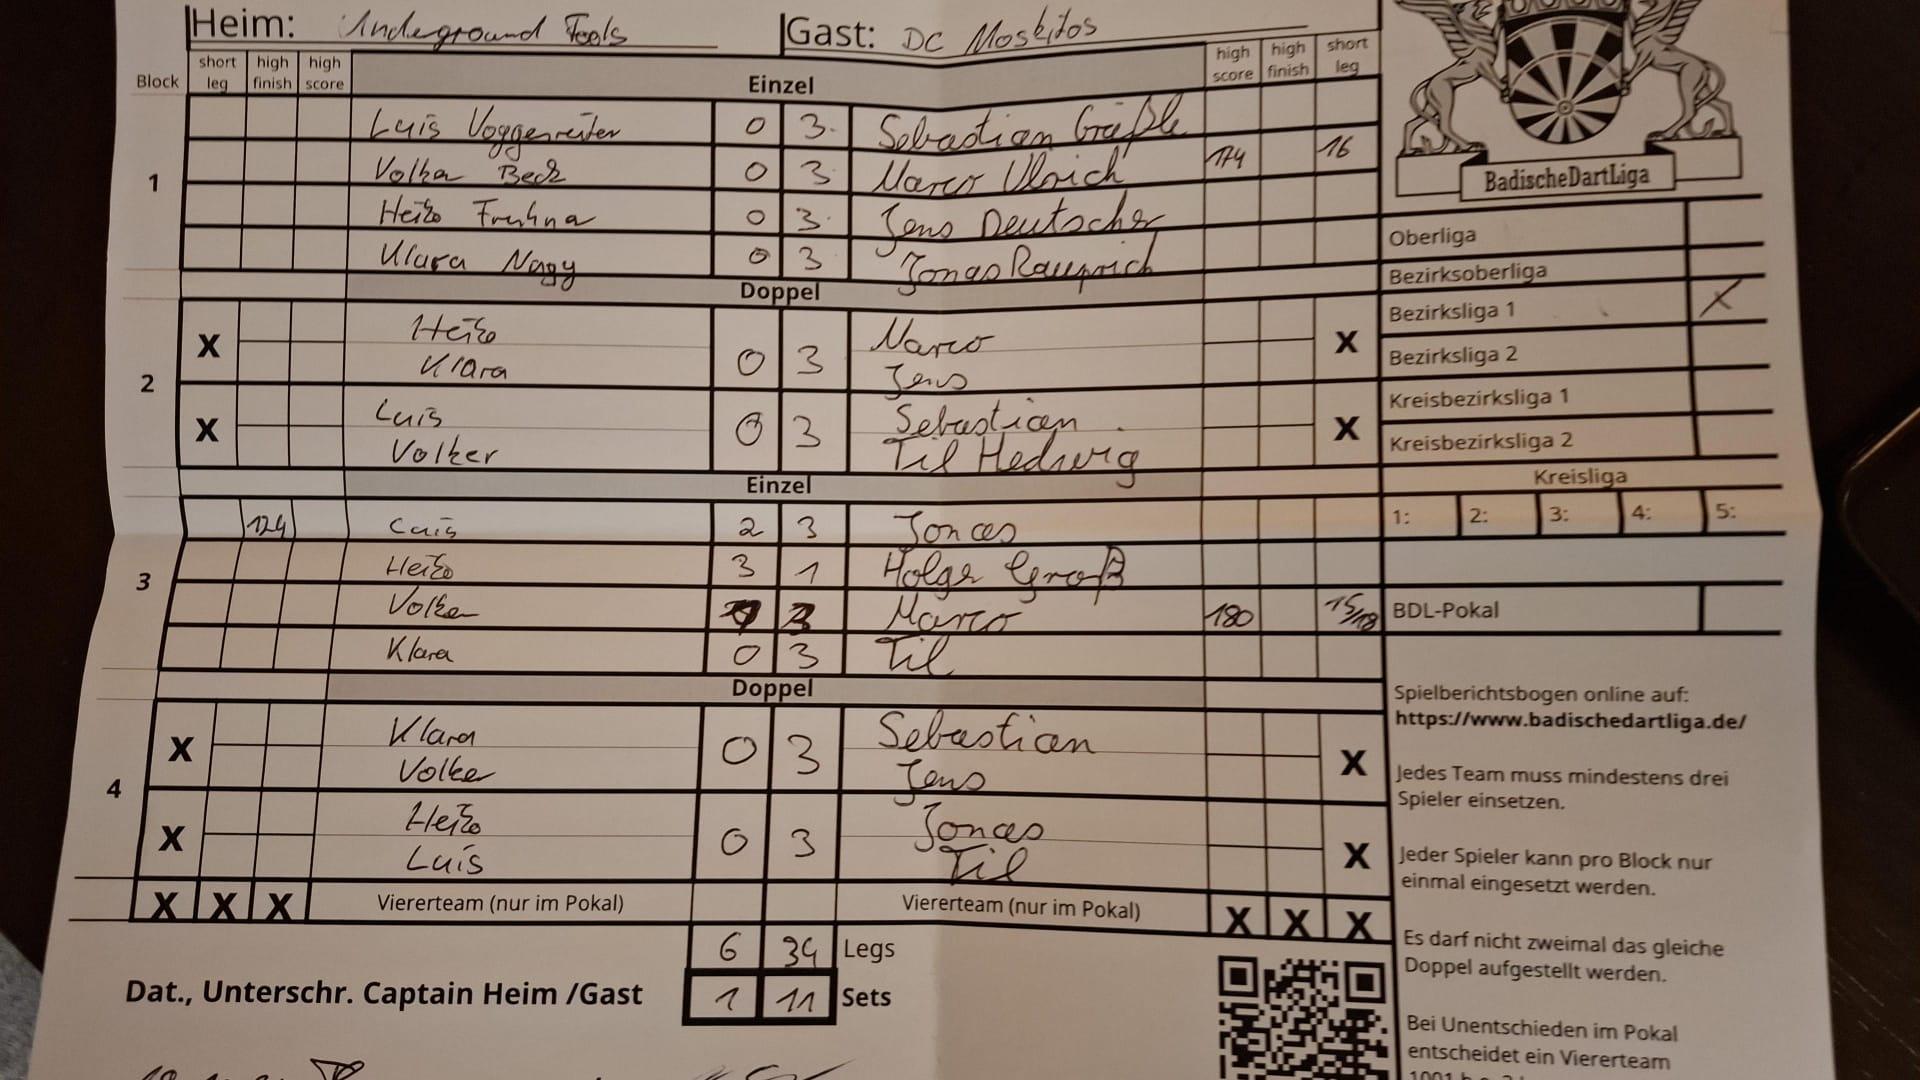 Heim: Underground Fools Gast: DC Moskitos
Block short leg high finish high score Einzel high score high finish short leg
1
Luis Voggenreiter 0 3 Sebastian
Volker Beck 0 3 Marco Ulrich 174 16
Heiko Fruhna 0 3 Jens Deutscher
Klara Nagy 0 3 Jonas Rauprich
Doppel
2
X Heiko 0 3 Marco X
Klara Jens
X Luis 0 3 Sebastian X
Volker Til Hedwig
Einzel
3
124 Luis 2 3 Jonas
Heiko 3 1 Holger Groß
Volker Marco 180 15/18
Klara 0 3 Til
Doppel
4
X Klara 0 3 Sebastian X
Volker Jens
X Heiko 0 3 Jonas X
Luis Til
X X X Viererteam (nur im Pokal) Viererteam (nur im Pokal) X X X
6 34 Legs
Dat., Unterschr. Captain Heim /Gast 1 11 Sets
BadischeDartLiga
Oberliga
Bezirksoberliga
Bezirksliga 1 X
Bezirksliga 2
Kreisbezirksliga 1
Kreisbezirksliga 2
Kreisliga
1: 2: 3: 4: 5:
BDL-Pokal
Spielberichtsbogen online auf:
https://www.badischedartliga.de/
Jedes Team muss mindestens drei
Spieler einsetzen.
Jeder Spieler kann pro Block nur
einmal eingesetzt werden.
Es darf nicht zweimal das gleiche
Doppel aufgestellt werden.
Bei Unentschieden im Pokal
entscheidet ein Viererteam